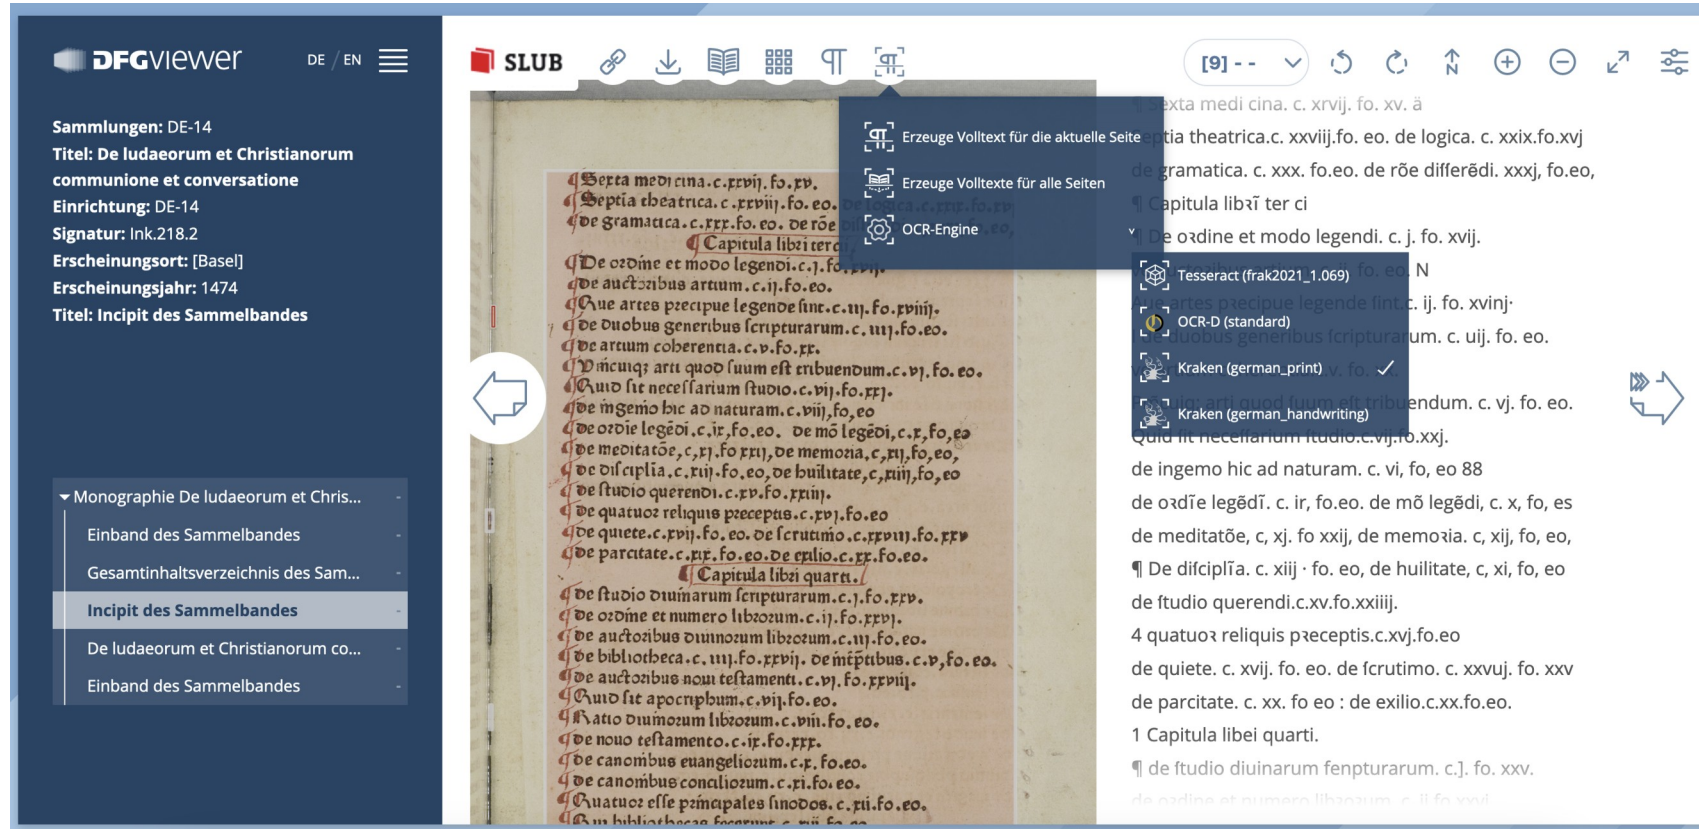 DFGVIEWER
DE / EN
SLUB
[9] - -
N
Sammlungen: DE-14
Titel: De Iudaeorum et Christianorum
communione et conversatione
Einrichtung: DE-14
Signatur: Ink.218.2
Erscheinungsort: [Basel]
Erscheinungsjahr: 1474
Titel: Incipit des Sammelbandes
Monographie De Iudaeorum et Chris... -
Einband des Sammelbandes -
Gesamtinhaltsverzeichnis des Sam... -
Incipit des Sammelbandes -
De Iudaeorum et Christianorum co... -
Einband des Sammelbandes -
Erzeuge Volltext für die aktuelle Seite
Erzeuge Volltexte für alle Seiten
OCR-Engine
Tesseract (frak2021_1.069)
OCR-D (standard)
Kraken (german_print)
Kraken (german_handwriting)
¶Sexta medicina.c.xxvij.fo.xv.
¶Septia theatrica.c.xxviij.fo.eo. de logica.c.xxix.fo.xvj
¶de gramatica.c.xxx.fo.eo. de rõe
¶Capitula libri tercij
¶De ordine et modo legendi.c.j.fo.xvij.
¶de auctoribus artium.c.ij.fo.eo.
¶Que artes precipue legende sint.c.iij.fo.xviij.
¶de duobus generibus scripturarum.c.iiij.fo.eo.
¶de artium coherentia.c.v.fo.xx.
arti quod suum est tribuendum.c.vj.fo.eo.
¶Quid sit necessarium studio.c.vij.fo.xxj.
¶de ingenio hic ad naturam.c.viij,fo,eo
¶de ordĩe legẽdi.c.ix,fo.eo. de mõ legẽdi,c.x,fo,eo
¶de meditatõe,c,xj.fo xxij, de memoria,c,xij,fo,eo,
¶de disciplĩa.c.xiij.fo.eo,de huilitate,c,xiiij,fo,eo
¶de studio querendi.c.xv.fo.xxiiij.
¶de quatuor reliquis preceptis.c.xvj.fo.eo
¶de quiete.c.xvij.fo.eo. de scrutinio.c.xxviij.fo.xxv
¶de parcitate.c.xix.fo.eo.de exilio.c.xx.fo.eo.
¶Capitula libri quarti.
¶de studio diuinarum scripturarum.c.j.fo.xxv.
¶de ordine et numero librorum.c.ij.fo.xxvj.
¶de auctoribus diuinorum librorum.c.iij.fo.eo.
¶de bibliotheca.c.iiij.fo.xxvij. de c.v,fo.eo.
¶de auctoribus noui testamenti.c.vj.fo.xxviij.
¶Quid sit apocriphum.c.vij.fo.eo.
¶Ratio diuinorum librorum.c.viij.fo.eo.
¶de nouo testamento.c.ix.fo.xxx.
¶de canonibus euangeliorum.c.x.fo.eo.
¶de canonibus conciliorum.c.xi.fo.eo.
¶Quatuor esse principales sinodos.c.xii.fo.eo.
¶Sexta medi cina. c. xrvij. fo. xv. ä
Septia theatrica.c. xxviij.fo. eo. de logica. c. xxix.fo.xvj
de gramatica. c. xxx. fo.eo. de rõe differẽdi. xxxj, fo.eo,
¶ Capitula libꝛĩ ter ci
¶ De oꝛdine et modo legendi. c. j. fo. xvij.
fo. eo. N
Aue artes pꝛecipue legende ſint.c. ij. fo. xvinj·
de duobus generibus ſcripturarum. c. uij. fo. eo.
arti quod ſuum eſt tribuendum. c. vj. fo. eo.
Quid ſit neceſſarium ſtudio.c.vij.fo.xxj.
de ingemo hic ad naturam. c. vi, fo, eo 88
de oꝛdĩe legẽdĩ. c. ir, fo.eo. de mõ legẽdi, c. x, fo, es
de meditatõe, c, xj. fo xxij, de memoꝛia. c, xij, fo, eo,
¶ De diſciplĩa. c. xiij · fo. eo, de huilitate, c, xi, fo, eo
de ſtudio querendi.c.xv.fo.xxiiij.
4 quatuoꝛ reliquis pꝛeceptis.c.xvj.fo.eo
de quiete. c. xvij. fo. eo. de ſcrutimo. c. xxvuj. fo. xxv
de parcitate. c. xx. fo eo : de exilio.c.xx.fo.eo.
1 Capitula libei quarti.
¶ de ſtudio diuinarum fenpturarum. c.]. fo. xxv.
de oꝛdine et numero libꝛoꝛum. c. ij fo xxvj